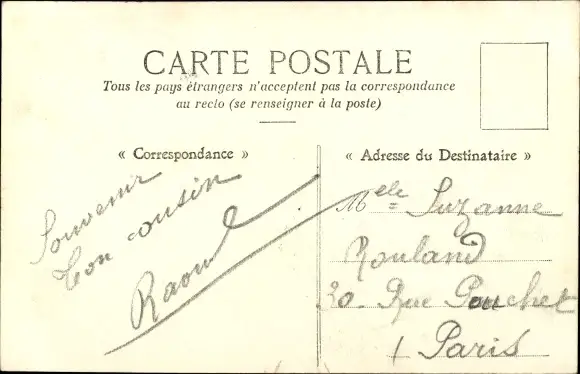 CARTE POSTALE
Tous les pays étrangers n'acceptent pas la correspondance
au recto (se renseigner à la poste)
« Correspondance »
Souvenir
Ton cousin
Raoul
« Adresse du Destinataire »
Melle Suzanne
Rouland
30 Rue Pouchet
Paris